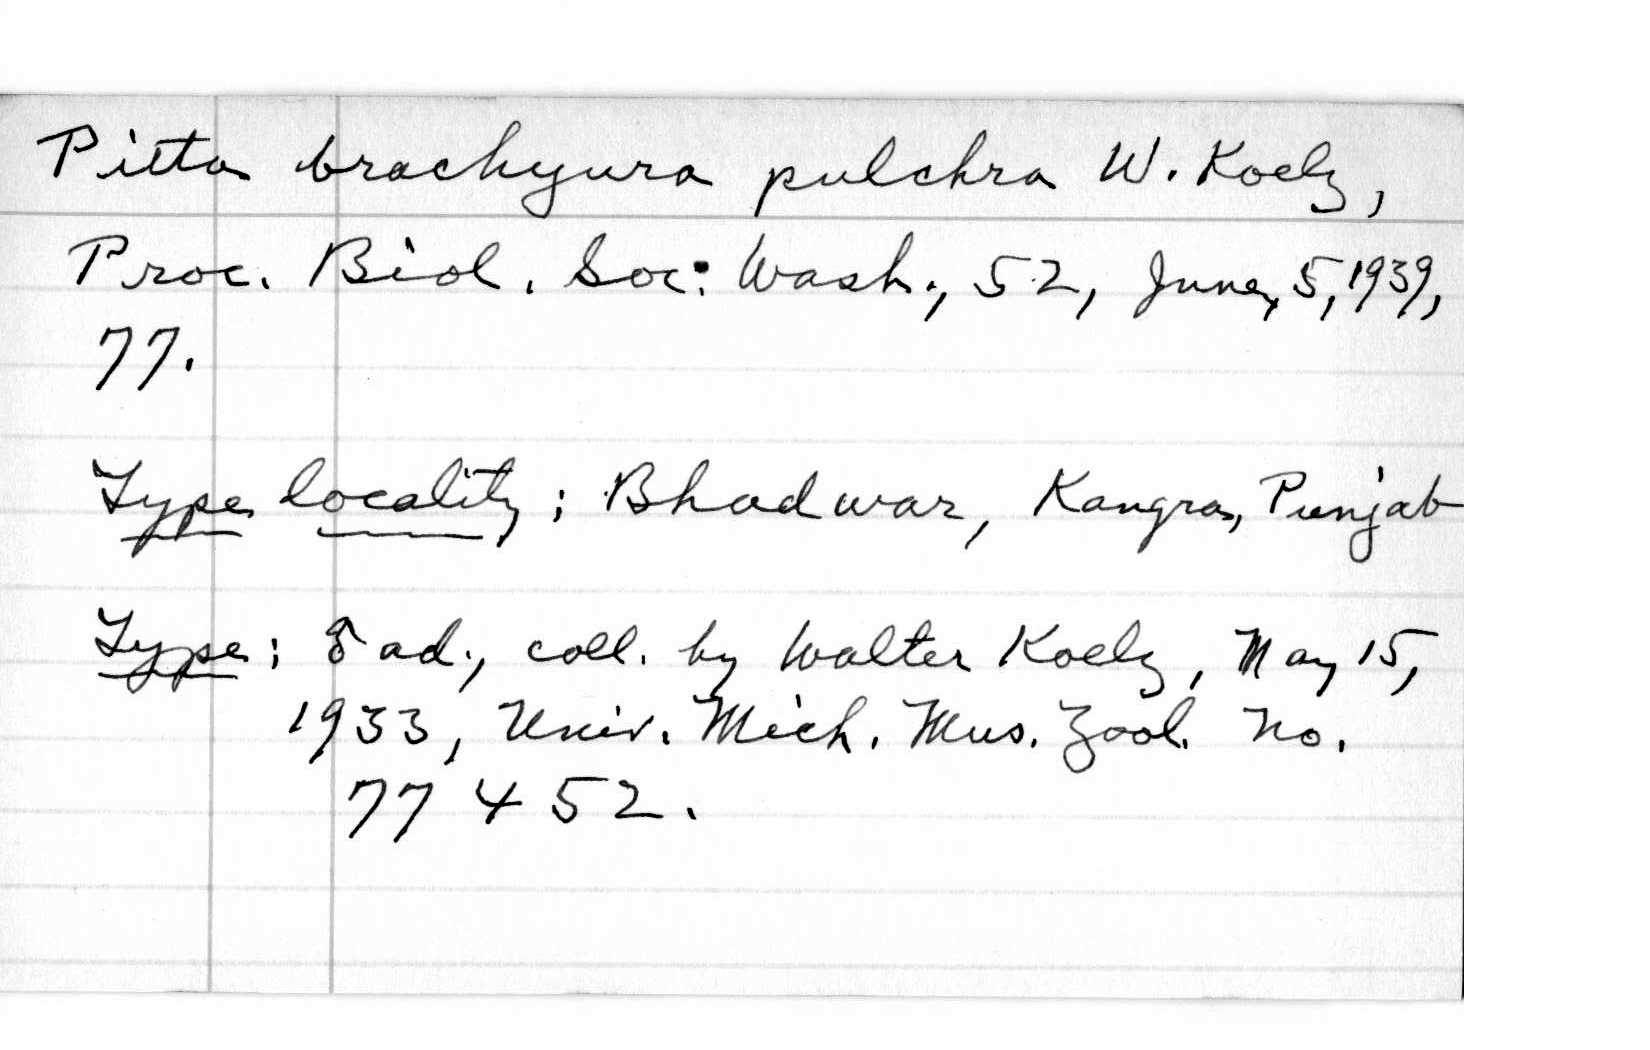 Pitta brachyura pulchra W. Koelz,
Proc. Biol. Soc. Wash., 52, June, 5, 1939,
77.
Type locality; Bhadwar, Kangra, Punjab
Type; ♂ ad., coll. by Walter Koelz, May 15,
1933, Univ. Mich. Mus. Zool. No.
77452.